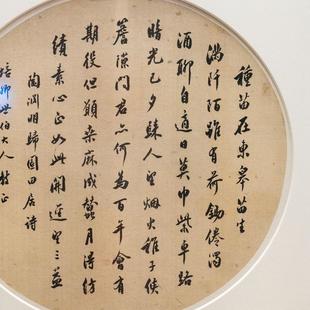 種苗在東皋苗生
滿阡陌雖有荷鋤倦濁
酒聊自適日莫巾柴車路
暗光已夕歸人望煙火稚子候
簷隙問君亦何為百年會有
期役但願桑麻成蠶月得紡
績素心正如此開逕望三益
陶淵明歸園田居詩
卿世伯大人教正